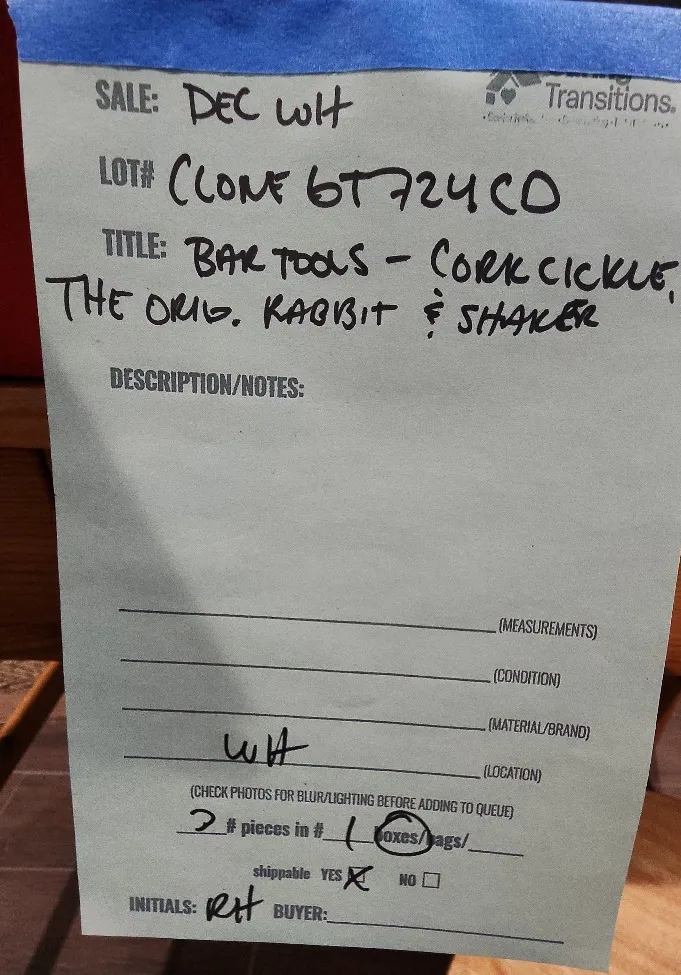 Transitions.
SALE: DEC WH
LOT# CLONE 6T724CD
TITLE: BAR TOOLS - CORKCICKLE,
THE ORIG. RABBIT & SHAKER
DESCRIPTION/NOTES:
(MEASUREMENTS)
(CONDITION)
(MATERIAL/BRAND)
WH (LOCATION)
(CHECK PHOTOS FOR BLUR/LIGHTING BEFORE ADDING TO QUEUE)
# pieces in # 1 boxes/bags/
shippable YES NO
INITIALS: RH BUYER: